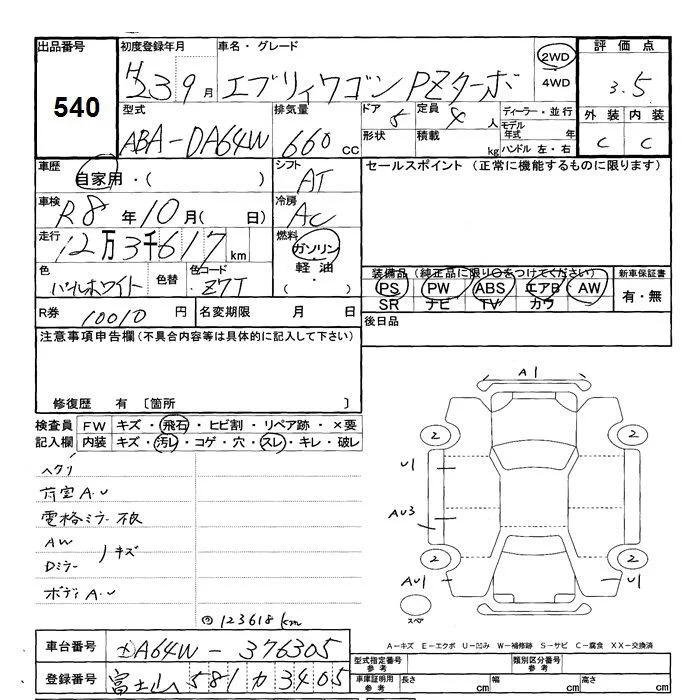 出品番号 初度登録年月 車名・グレード 2WD 評価点
540 H23 9月 エブリィワゴン PZターボ 4WD 3.5
型式 排気量 ドア 5 定員 4人 ディーラー・並行 外装 内装
ABA-DA64W 660cc 形状 積載 kg モデル年式 年 ハンドル 左・右 C C
車歴 自家用・( ) シフト AT セールスポイント(正常に機能するものに限ります)
車検 R8年10月( 日) 冷房 AC
走行 12万3千617km 燃料 ガソリン
軽油
( ・ )
色 パールホワイト 色替 色コード Z7T 装備品(純正品に限り○をつけてください) 新車保証書
PS PW ABS エアB AW 有・無
SR ナビ TV カワ
R券 10010円 名変期限 月 日 後日品
注意事項申告欄(不具合内容等は具体的に記入して下さい)
修復歴 有 〔箇所 〕
検査員 FW キズ・飛石・ヒビ割・リペア跡・×要
記入欄 内装 キズ・汚レ・コゲ・穴・スレ・キレ・破レ
ヘタリ
荷室A.U
電格ミラー不良
AW
Dミラー キズ
ボディA.U
123618km
A1
2 2
U1
AU3
2 2
AU1 U1
スペア
A-キズ E-エクボ U-凹み W-補修跡 S-サビ C-腐食 XX-交換済
車台番号 DA64W-376305 型式指定番号 参考 類別区分番号 参考
登録番号 富士山 581 カ 3405 車庫証明用 参考 長さ cm 幅 cm 高さ cm